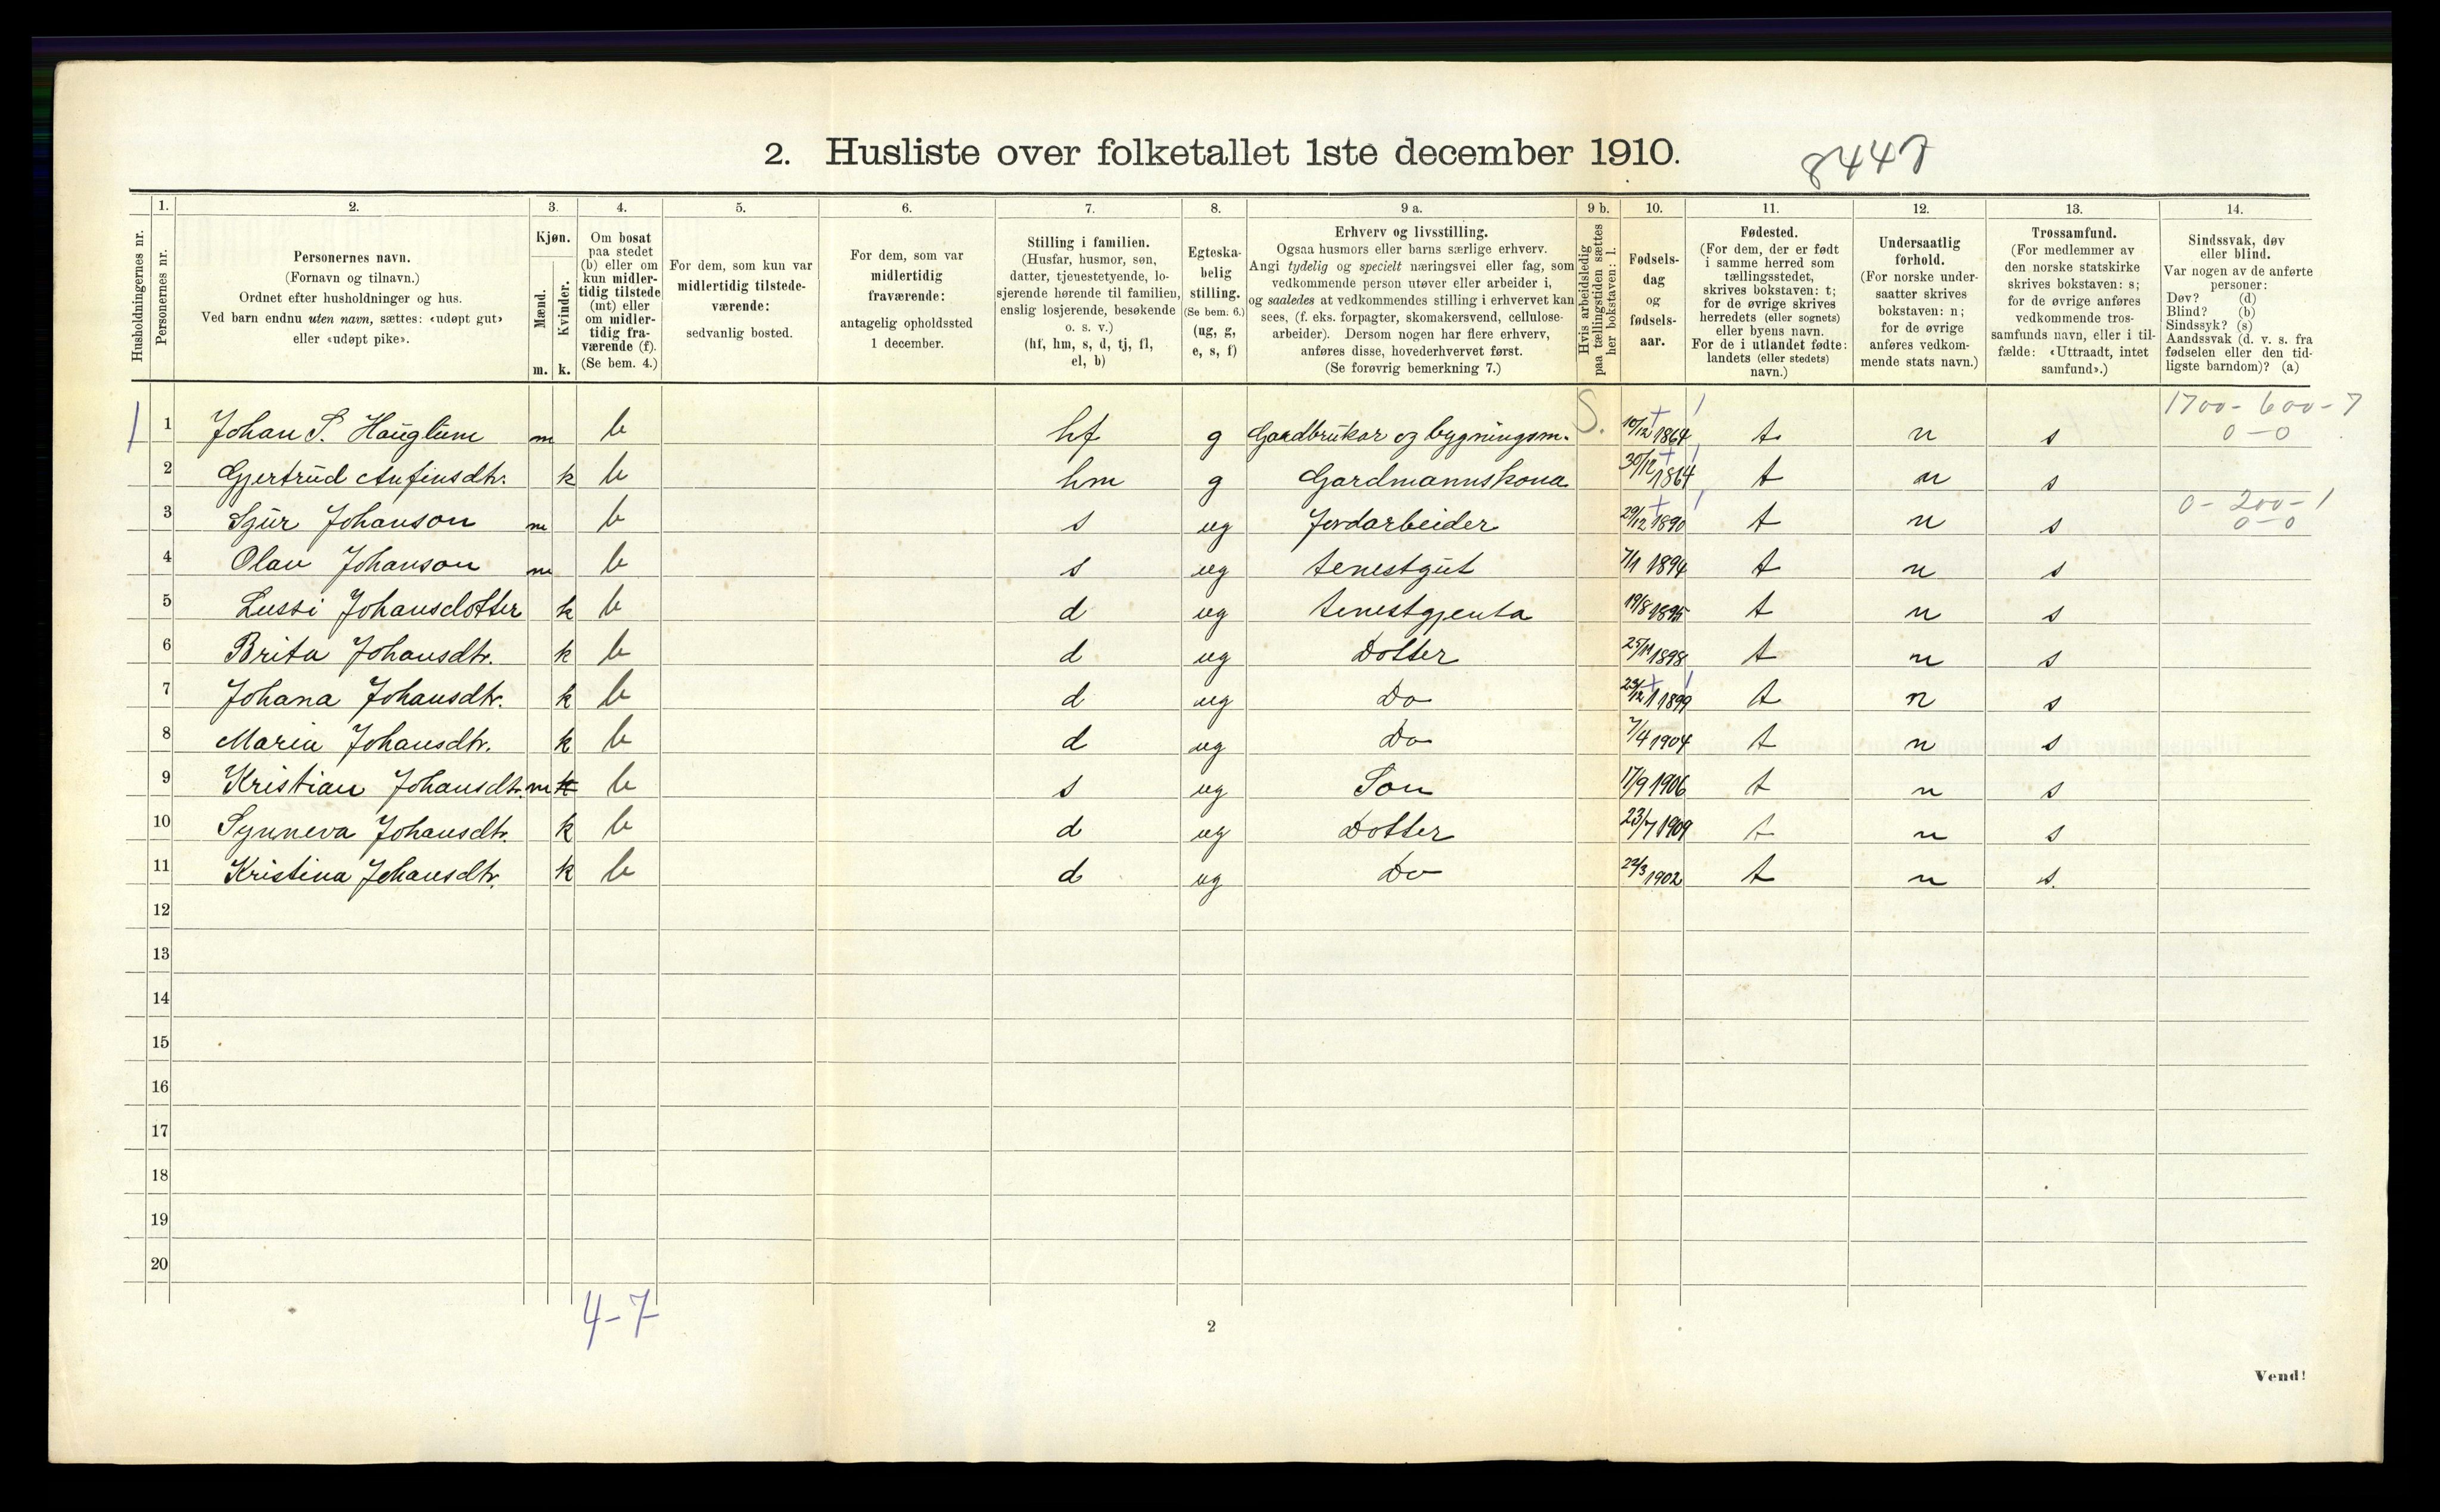 2. Husliste over folketallet 1ste december 1910.
8447
1. 2. 3. 4. 5. 6. 7. 8. 9 a. 9 b. 10. 11. 12. 13. 14.
Husholdningernes nr.
Personernes nr.
Personernes navn.
(Fornavn og tilnavn.)
Ordnet efter husholdninger og hus.
Ved barn endnu uten navn, sættes: «udøpt gut»
eller «udøpt pike».
Kjøn.
Mænd.
Kvinder.
m. k.
Om bosat
paa stedet
(b) eller om
kun midler-
tidig tilstede
(mt) eller
om midler-
tidig fra-
værende (f).
(Se bem. 4.)
For dem, som kun var
midlertidig tilstede-
værende:
sedvanlig bosted.
For dem, som var
midlertidig
fraværende:
antagelig opholdssted
1 december.
Stilling i familien.
(Husfar, husmor, søn,
datter, tjenestetyende, lo-
sjerende hørende til familien,
enslig losjerende, besøkende
o. s. v.)
(hf, hm, s, d, tj, fl,
el, b)
Egteska-
belig
stilling.
(Se bem. 6.)
(ug, g,
e, s, f)
Erhverv og livsstilling.
Ogsaa husmors eller barns særlige erhverv.
Angi tydelig og specielt næringsvei eller fag, som
vedkommende person utøver eller arbeider i,
og saaledes at vedkommendes stilling i erhvervet kan
sees, (f. eks. forpagter, skomakersvend, cellulose-
arbeider). Dersom nogen har flere erhverv,
anføres disse, hovederhvervet først.
(Se forøvrig bemerkning 7.)
Hvis arbeidsledig
paa tællingstiden sættes
her bokstaven: l.
Fødsels-
dag
og
fødsels-
aar.
Fødested.
(For dem, der er født
i samme herred som
tællingsstedet,
skrives bokstaven: t;
for de øvrige skrives
herredets (eller sognets)
eller byens navn.
For de i utlandet fødte:
landets (eller stedets)
navn.)
Undersaatlig
forhold.
(For norske under-
saatter skrives
bokstaven: n;
for de øvrige
anføres vedkom-
mende stats navn.)
Trossamfund.
(For medlemmer av
den norske statskirke
skrives bokstaven: s;
for de øvrige anføres
vedkommende tros-
samfunds navn, eller i til-
fælde: «Uttraadt, intet
samfund».)
Sindssvak, døv
eller blind.
Var nogen av de anførte
personer:
Døv? (d)
Blind? (b)
Sindssyk? (s)
Aandssvak (d. v. s. fra
fødselen eller den tid-
ligste barndom)? (a)
1700-600-7
1 1 Johan S. Hauglum m b hf g Gardbrukar og bygningsm. S. 10/12 1864 t n s 0-0
2 Gjertrud Anfinsdtr. k b hm g Gardmannskona 30/12 1864 t n s
0-200-1
3 Sjur Johanson m b s ug Jordarbeider 29/12 1890 t n s 0-0
4 Olav Johanson m b s ug tenestgut 7/1 1894 t n s
5 Lussi Johansdotter k b d ug tenestgjenta 19/8 1895 t n s
6 Brita Johansdtr. k b d ug Dotter 25/11 1898 t n s
7 Johana Johansdtr. k b d ug Do 23/12 1899 t n s
8 Maria Johansdtr. k b d ug Do 7/4 1904 t n s
9 Kristian Johansdtr. m k b s ug Son 17/9 1906 t n s
10 Synneva Johansdtr. k b d ug Dotter 23/7 1909 t n s
11 Kristina Johansdtr. k b d ug Do 22/3 1902 t n s.
12
13
14
15
16
17
18
19
20
4-7
2
Vend!